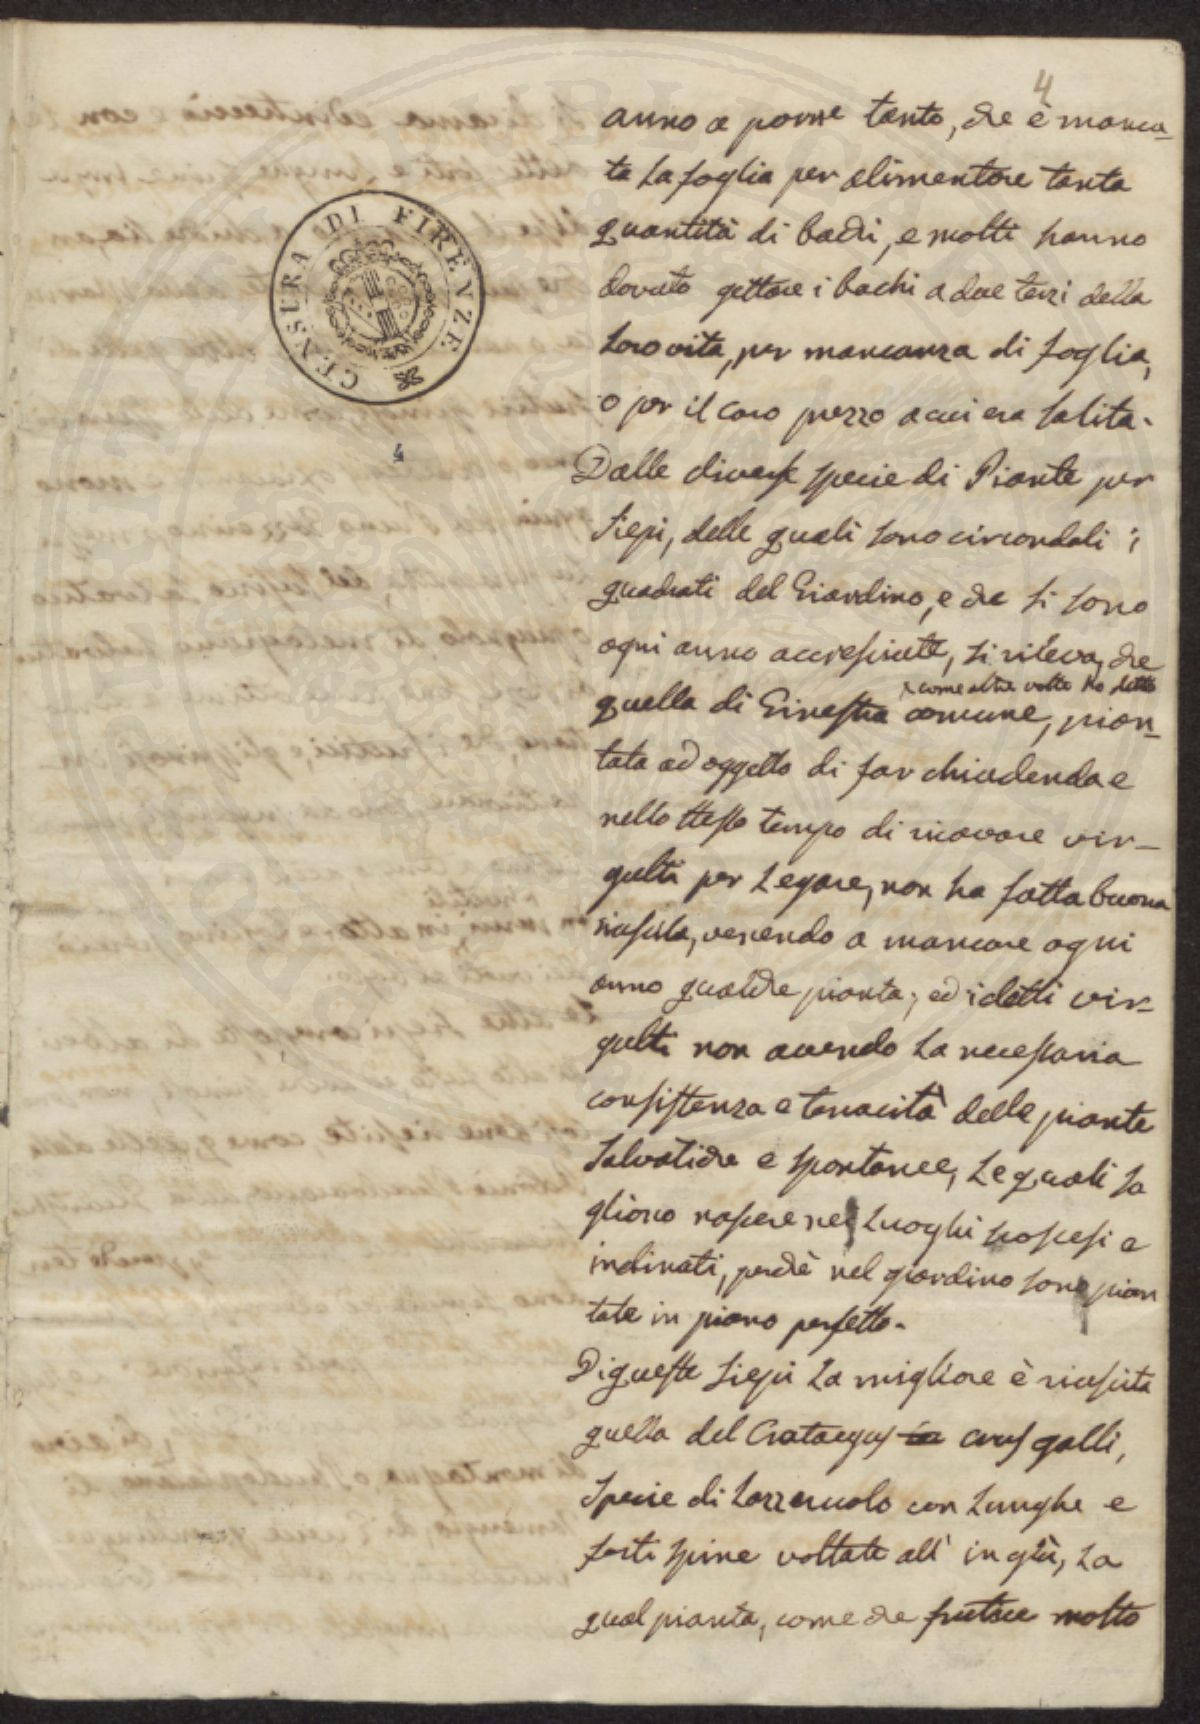 4
CENSURA DI FIRENZE
4
anno a porne tanto, che è manca-
ta la foglia per alimentare tanta
quantità di bachi, e molti hanno
dovuto gettare i bachi a due terzi della
loro vita, per mancanza di foglia,
o per il caro prezzo a cui era salita.
Dalle diverse specie di Piante per
siepi, delle quali sono circondati i
quadrati del Giardino, e che si sono
ogni anno accresciute, si rileva, che
come altre volte ho detto
quella di Ginestra comune, pian-
tata ad oggetto di far chiudenda e
nello stesso tempo di ricavare vir-
gulti per legare, non ha fatta buona
riuscita, venendo a mancare ogni
anno qualche pianta, ed i detti vir-
gulti non avendo la necessaria
consistenza e tenacità delle piante
salvatiche e spontanee, le quali so
gliono nascere nei luoghi scoscesi e
inclinati, perchè nel giardino sono pian
tate in piano perfetto.
Di queste siepi la migliore è riuscita
quella del Crataegus crus galli,
specie di Lazzeruolo con lunghe e
forti spine voltate all' in giù, la
qual pianta, come che frutice molto